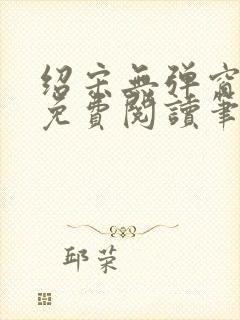 绍宋無弹窗
免費閱讀筆
邱荣